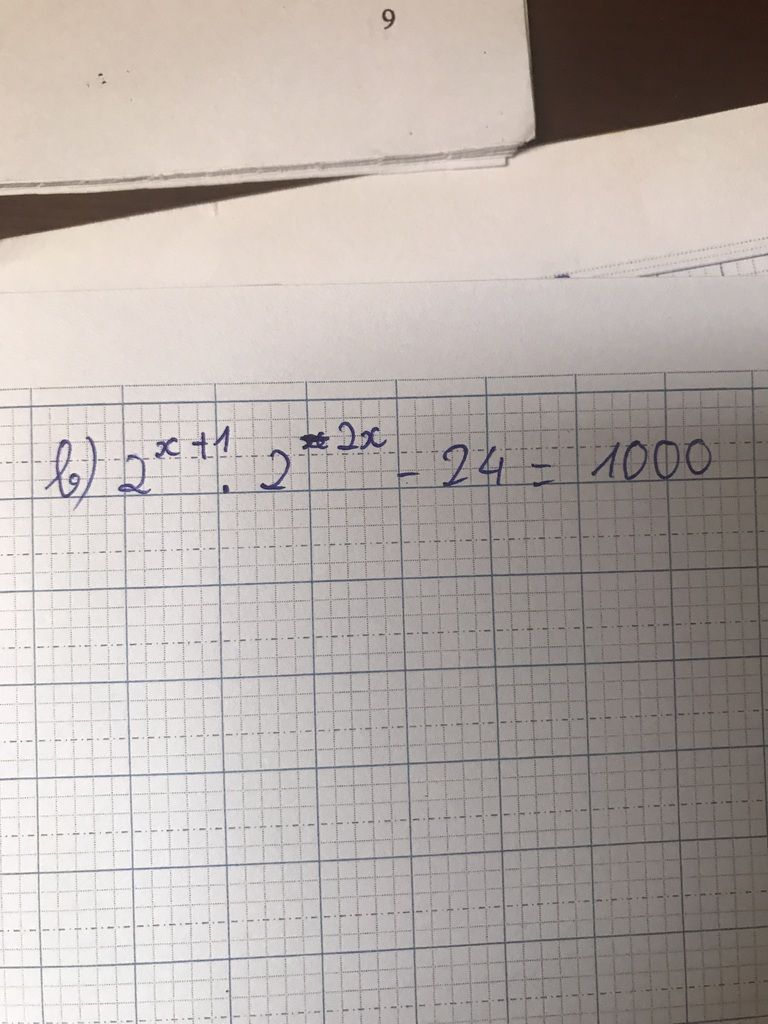 9
b) 2^{x+1} . 2^{2x} - 24 = 1000